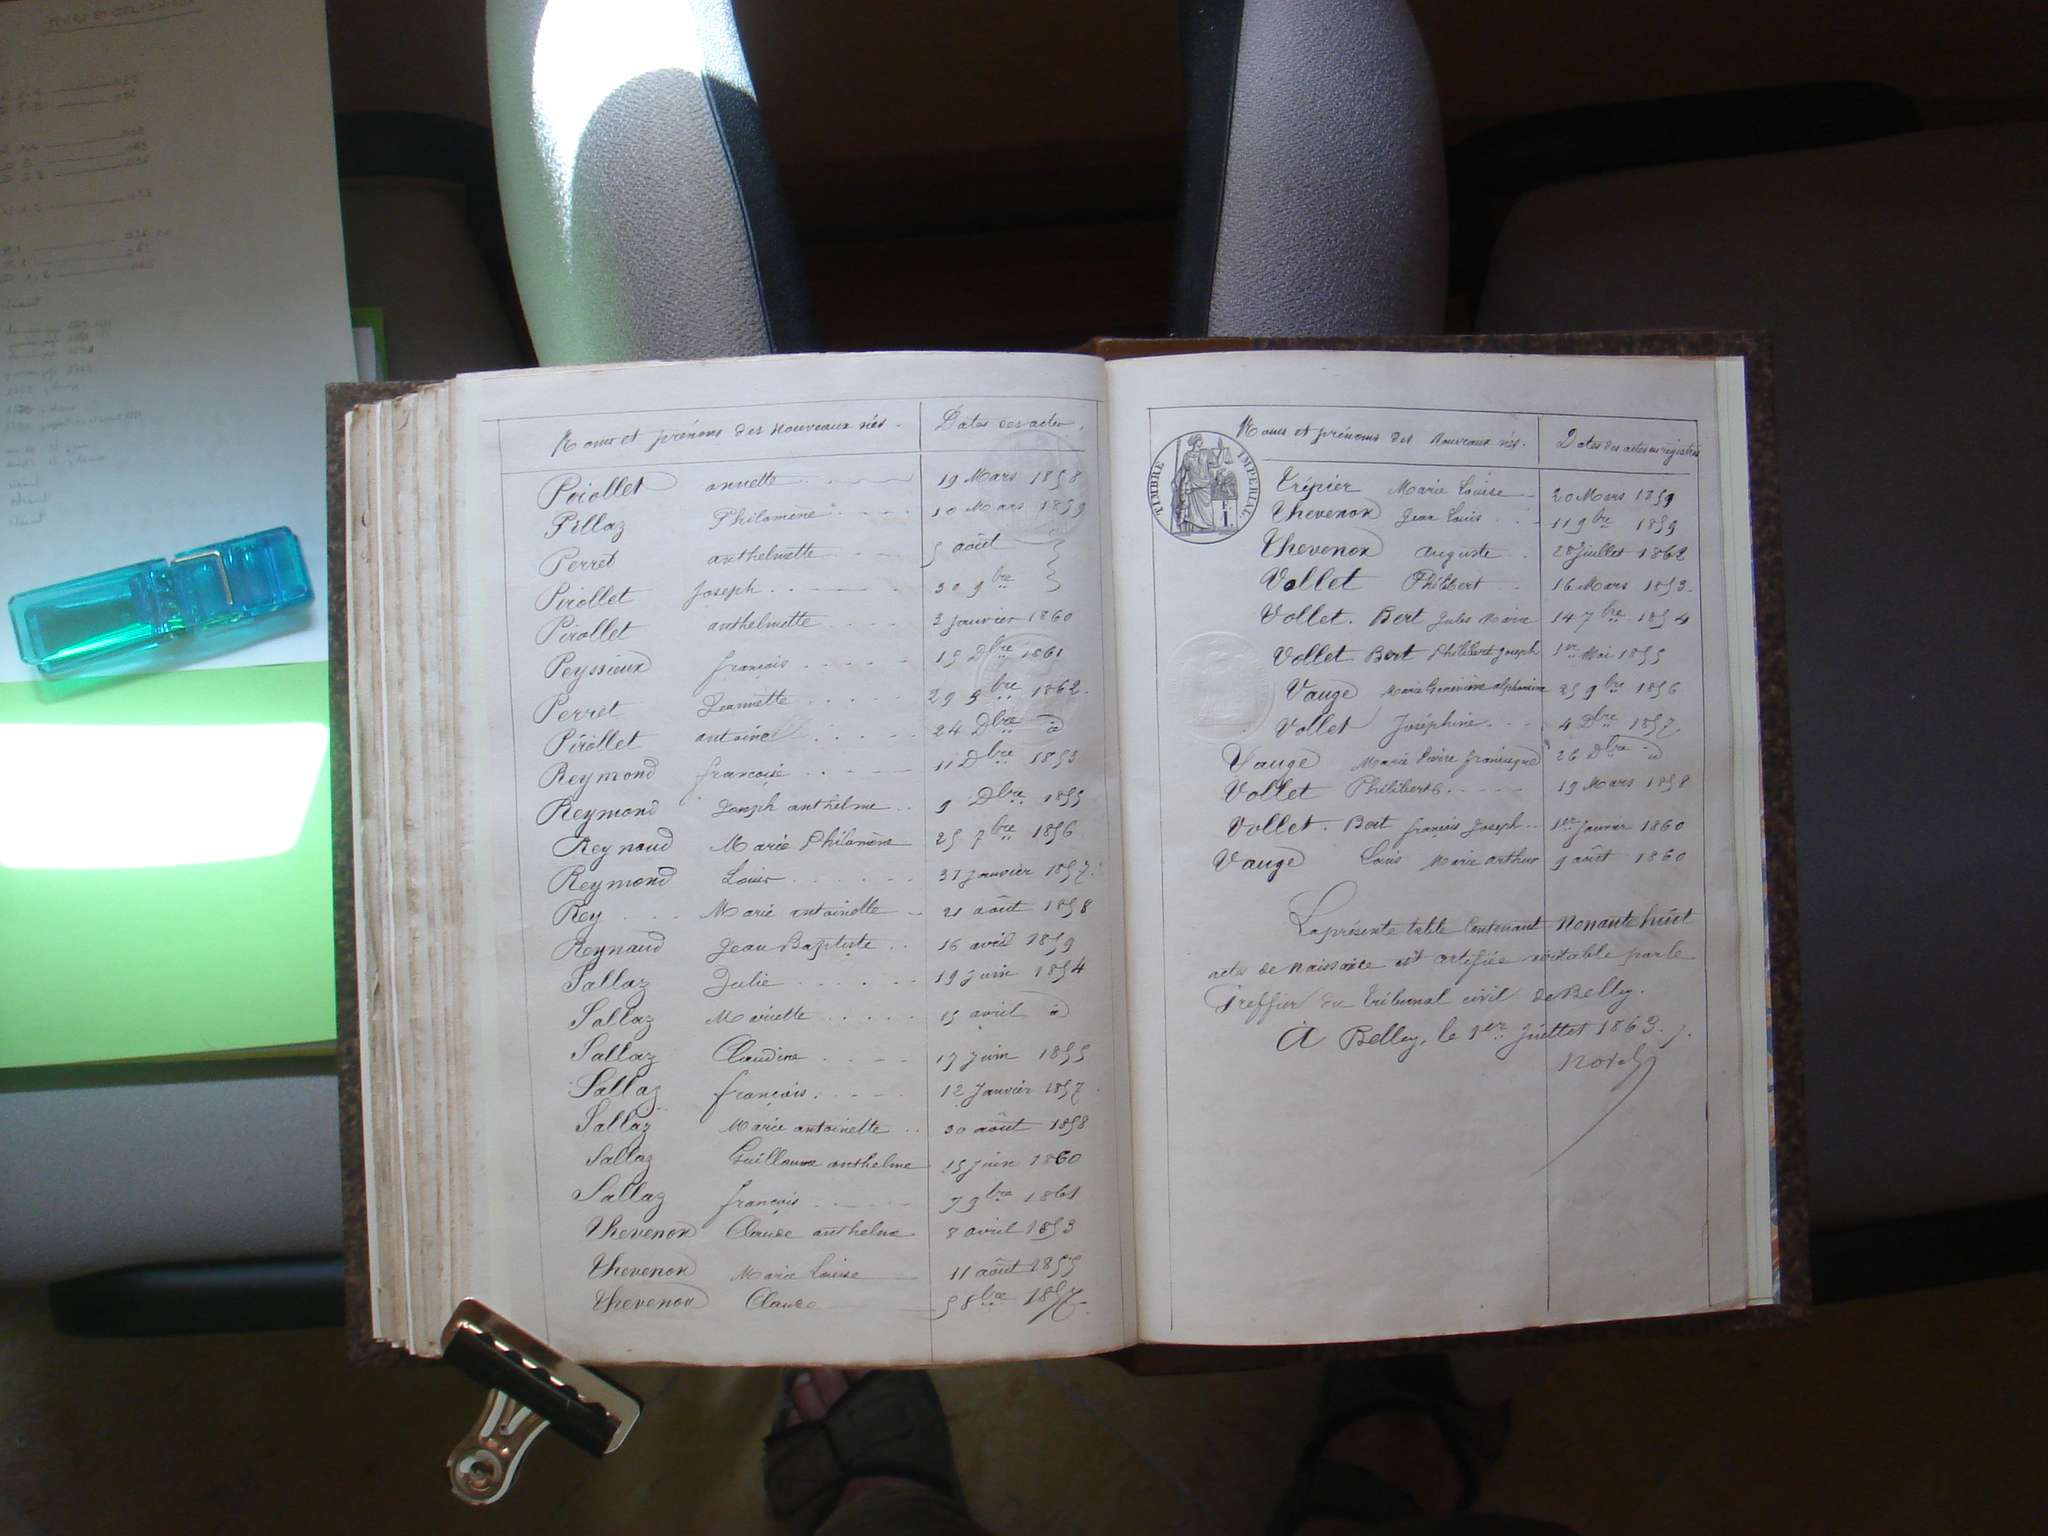 Noms et prénoms des nouveaux nés. Dates des actes.
Pirollet annette 19 Mars 1858
Pillaz Philomène 10 Mars 1859
Perret anthelmette 5 août
Pirollet Joseph 30 9bre
Pirollet anthelmette 3 Janvier 1860
Peyssieux françois 15 Dbre 1861
Perret Jeannette 29 9bre 1862.
Pirollet antoine 24 Dbre d
Reymond françoise 11 Dbre 1853
Reymond Joseph anthelme 9 Dbre 1855
Reynaud Marie Philomène 25 7bre 1856
Reymond Louis 31 Janvier 1857.
Rey Marie antoinette 21 août 1858
Reynaud Jean Baptiste 16 avril 1859
Sallaz Julie 19 juin 1854
Sallaz Mariette 15 avril d
Sallaz Claudine 17 juin 1855
Sallaz françois 12 Janvier 1857.
Sallaz Marie antoinette 30 août 1858
Sallaz Guillaume anthelme 15 juin 1860
Sallaz françois 7 9bre 1861
Thevenon Claude anthelme 8 avril 1853
Thevenon Marie Louise 11 août 1855
Thevenon Claude 5 8bre 1857.
TIMBRE IMPERIAL.
Noms et prénoms des nouveaux nés. Dates des actes ou registres
Trépier Marie Louise 20 Mars 1859
Thevenon Jean Louis 11 9bre 1859
Thevenon auguste 28 Juillet 1862
Vollet Philibert 16 Mars 1853.
Vollet. Bert Jules Marie 14 7bre 1854
Vollet Bert Philibert Joseph 1er Mai 1855
Vauge Marie Geneviève alphonsine 25 9bre 1856
Vollet Joséphine 4 Dbre 1857
Vauge Marie Pierre 26 Dbre d
Vollet Philiberte 19 Mars 1858
Vollet. Bert françois Joseph 1er Janvier 1860
Vauge Louis Marie arthur 9 août 1860
La présente table Contenant Nonante huit
actes de naissance est certifiée véritable par le
Greffier du Tribunal civil de Belley.
A Belley, le 1er Juillet 1863.